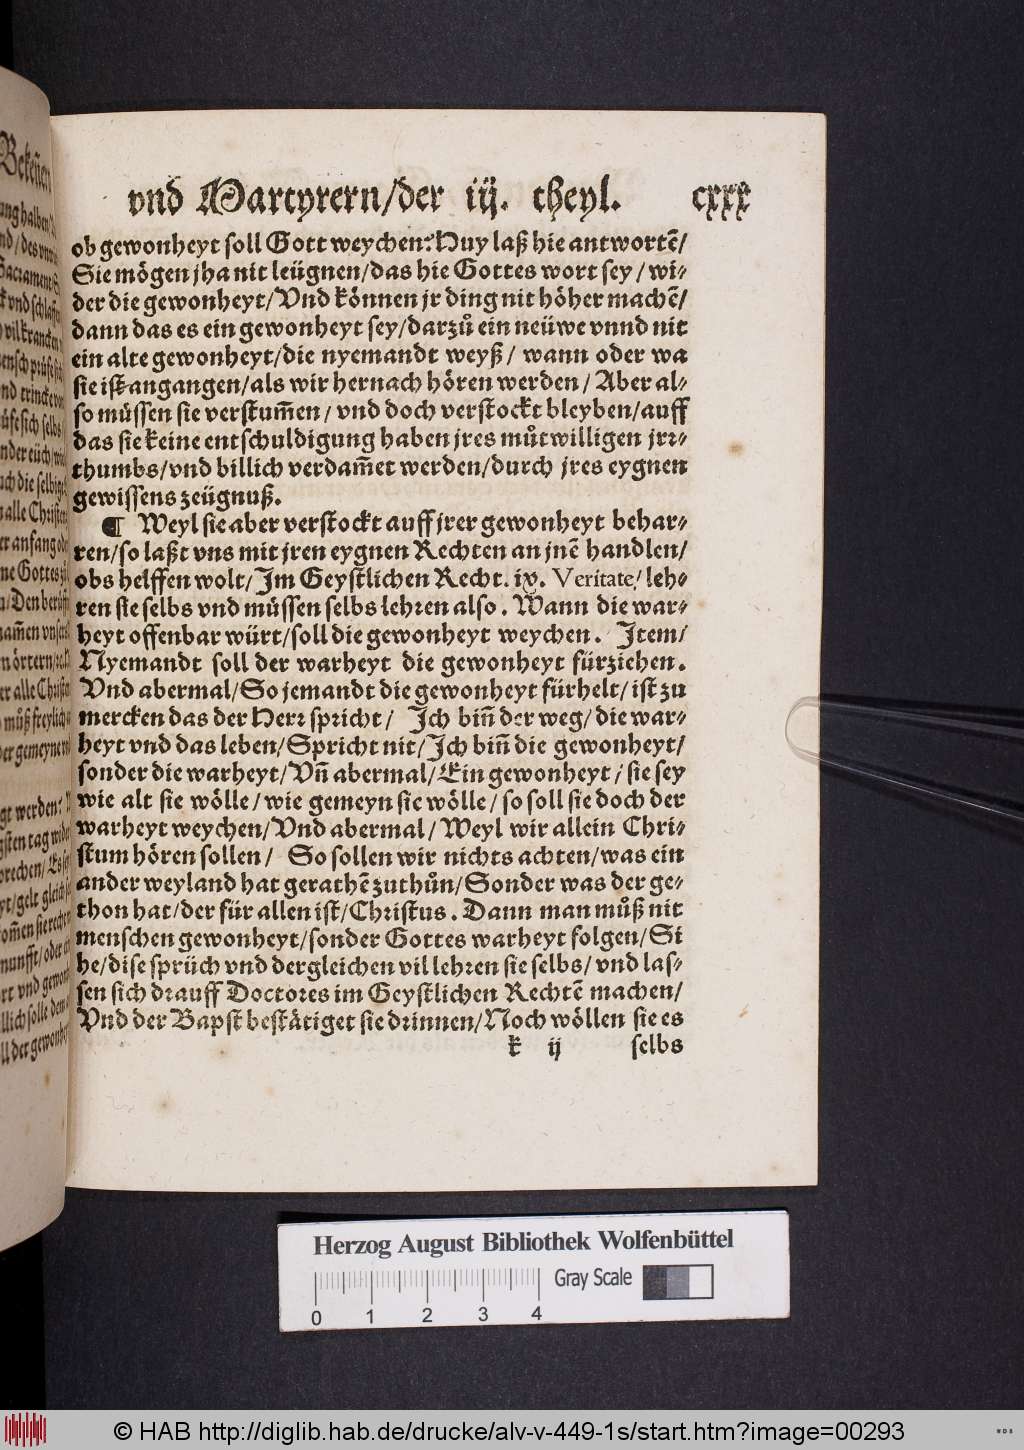 Bekeñen
vnd Martyrern/der iij. theyl. cxxx
ob gewonheyt soll Gott weychen? Nuy laß hie antwortẽ/
Sie mögen jha nit leügnen/das hie Gottes wort sey/wi⸗
der die gewonheyt/Vnd können jr ding nit höher machẽ/
dann das es ein gewonheyt sey/darzů ein neüwe vnnd nit
ein alte gewonheyt/die nyemandt weyß/ wann oder wa
sie ist angangen/als wir hernach hören werden/Aber al⸗
so müssen sie verstum̃en/ vnd doch verstockt bleyben/auff
das sie keine entschuldigung haben jres můtwilligen jrꝛ⸗
thumbs/vnd billich verdam̃et werden/durch jres eygnen
gewissens zeügnuß.
¶ Weyl sie aber verstockt auff jrer gewonheyt behar⸗
ren/so laßt vns mit jren eygnen Rechten an jnẽ handlen/
obs helffen wolt/Im Geystlichen Recht. ix. Veritate/ leh⸗
ren sie selbs vnd müssen selbs lehꝛen also. Wann die war⸗
heyt offenbar würt/soll die gewonheyt weychen. Item/
Nyemandt soll der warheyt die gewonheyt fürziehen.
Vnd abermal/So jemandt die gewonheyt fürhelt/ist zu
mercken das der Herꝛ spꝛicht/ Ich biñ der weg/die war⸗
heyt vnd das leben/Spꝛicht nit/Ich biñ die gewonheyt/
sonder die warheyt/Vñ abermal/Ein gewonheyt/sie sey
wie alt sie wölle/wie gemeyn sie wölle/so soll sie doch der
warheyt weychen/Vnd abermal/Weyl wir allein Chꝛi⸗
stum hören sollen/ So sollen wir nichts achten/was ein
ander weyland hat gerathẽ zuthůn/Sonder was der ge⸗
thon hat/der für allen ist/Chꝛistus. Dann man můß nit
menschen gewonheyt/sonder Gottes warheyt folgen/Si
he/dise spꝛüch vnd dergleichen vil lehꝛen sie selbs/vnd las⸗
sen sich dꝛauff Doctoꝛes im Geystlichen Rechtẽ machen/
Vnd der Bapst bestätiget sie dꝛinnen/Noch wöllen sie es
k ij selbs
Herzog August Bibliothek Wolfenbüttel
Gray Scale
0 1 2 3 4
© HAB http://diglib.hab.de/drucke/alv-v-449-1s/start.htm?image=00293